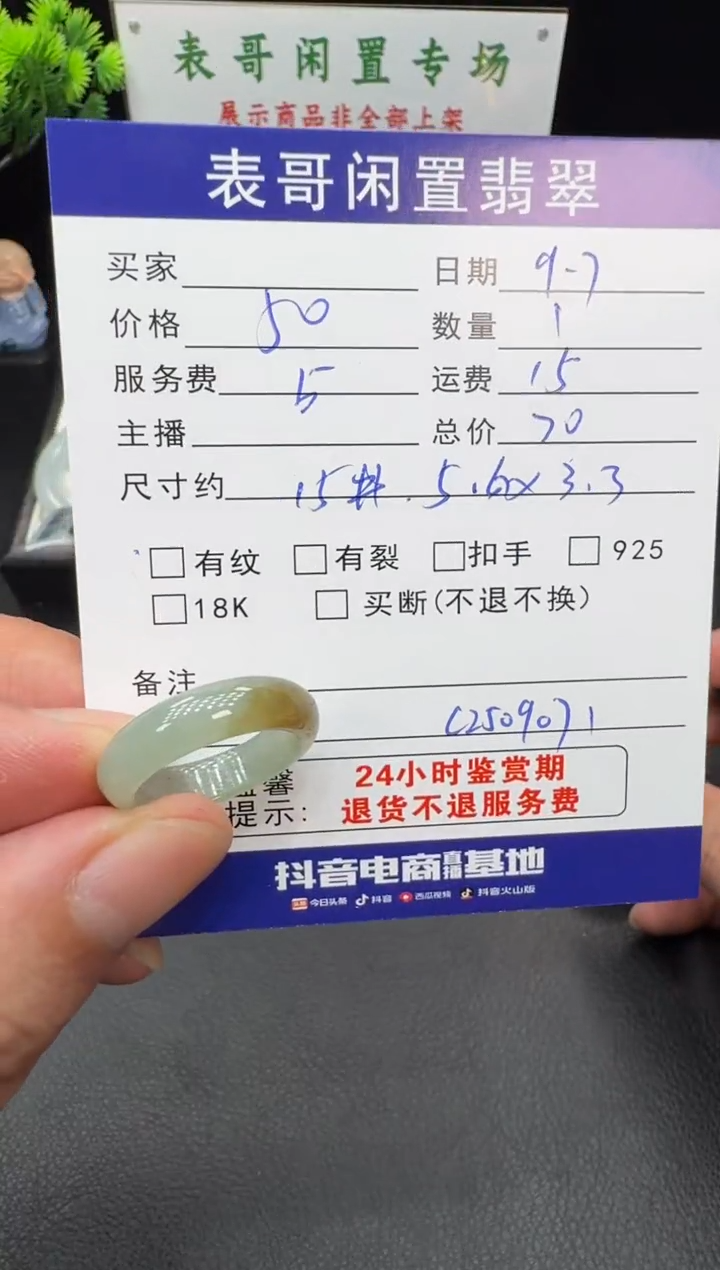 表哥闲置专场
展示商品非全部上架
表哥闲置翡翠
买家 日期 9-7
价格 50 数量 1
服务费 5 运费 15
主播 总价 70
尺寸约 15# . 5.6x3.3
□有纹 □有裂 □扣手 □925
□18K □买断(不退不换)
备注
(250907)1
温馨 24小时鉴赏期
提示: 退货不退服务费
抖音电商直播基地
头条 今日头条 抖音 西瓜视频 抖音火山版